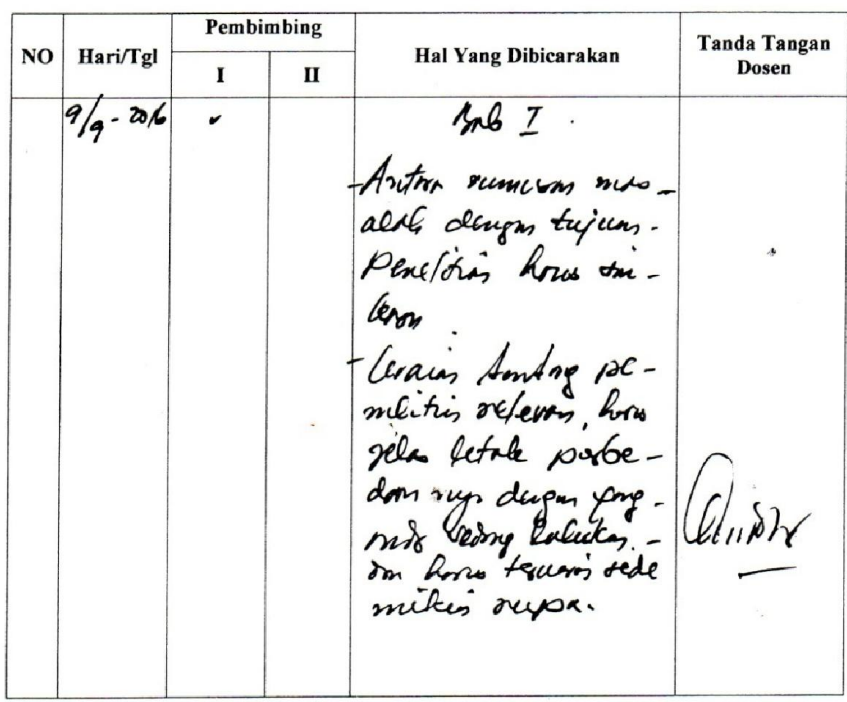 NO Hari/Tgl Pembimbing Hal Yang Dibicarakan Tanda Tangan Dosen
I II
9/9 - 2016 ✓ Bab I .
- Antara rumusan mas -
alah dengan tujuan -
Penelitian harus sin -
kron
- Uraian tentang pe -
nelitian relevan, harus
jelas letak perbe -
daan nya dengan yang -
sedang lakukan -
harus sede
mikian rupa.